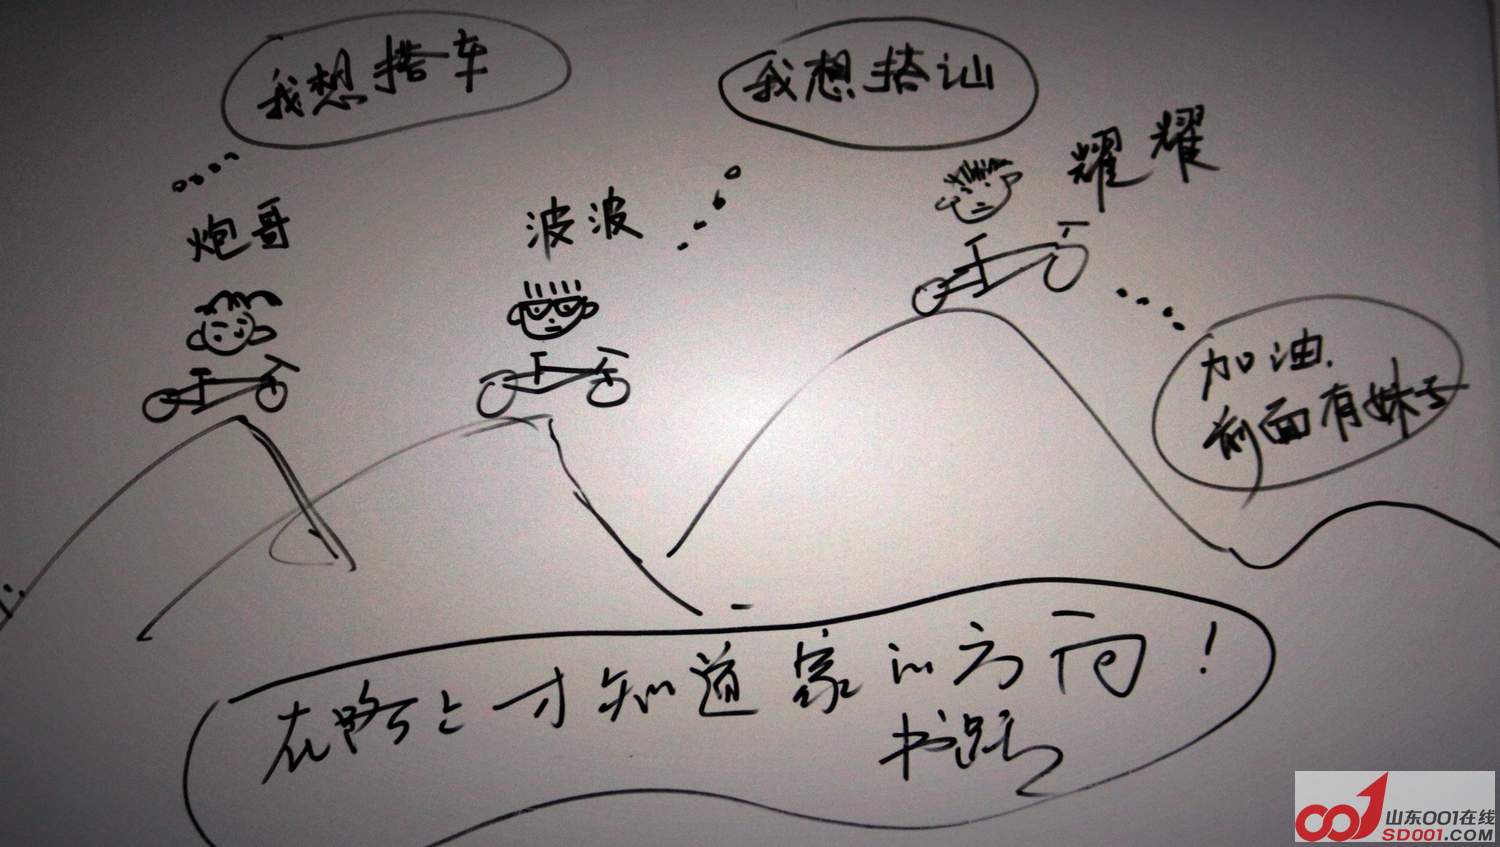 我想搭车
我想搭讪
炮哥
波波
耀耀
加油.
前面有妹子
在路上才知道家的方向!
山东001在线
SD001.COM